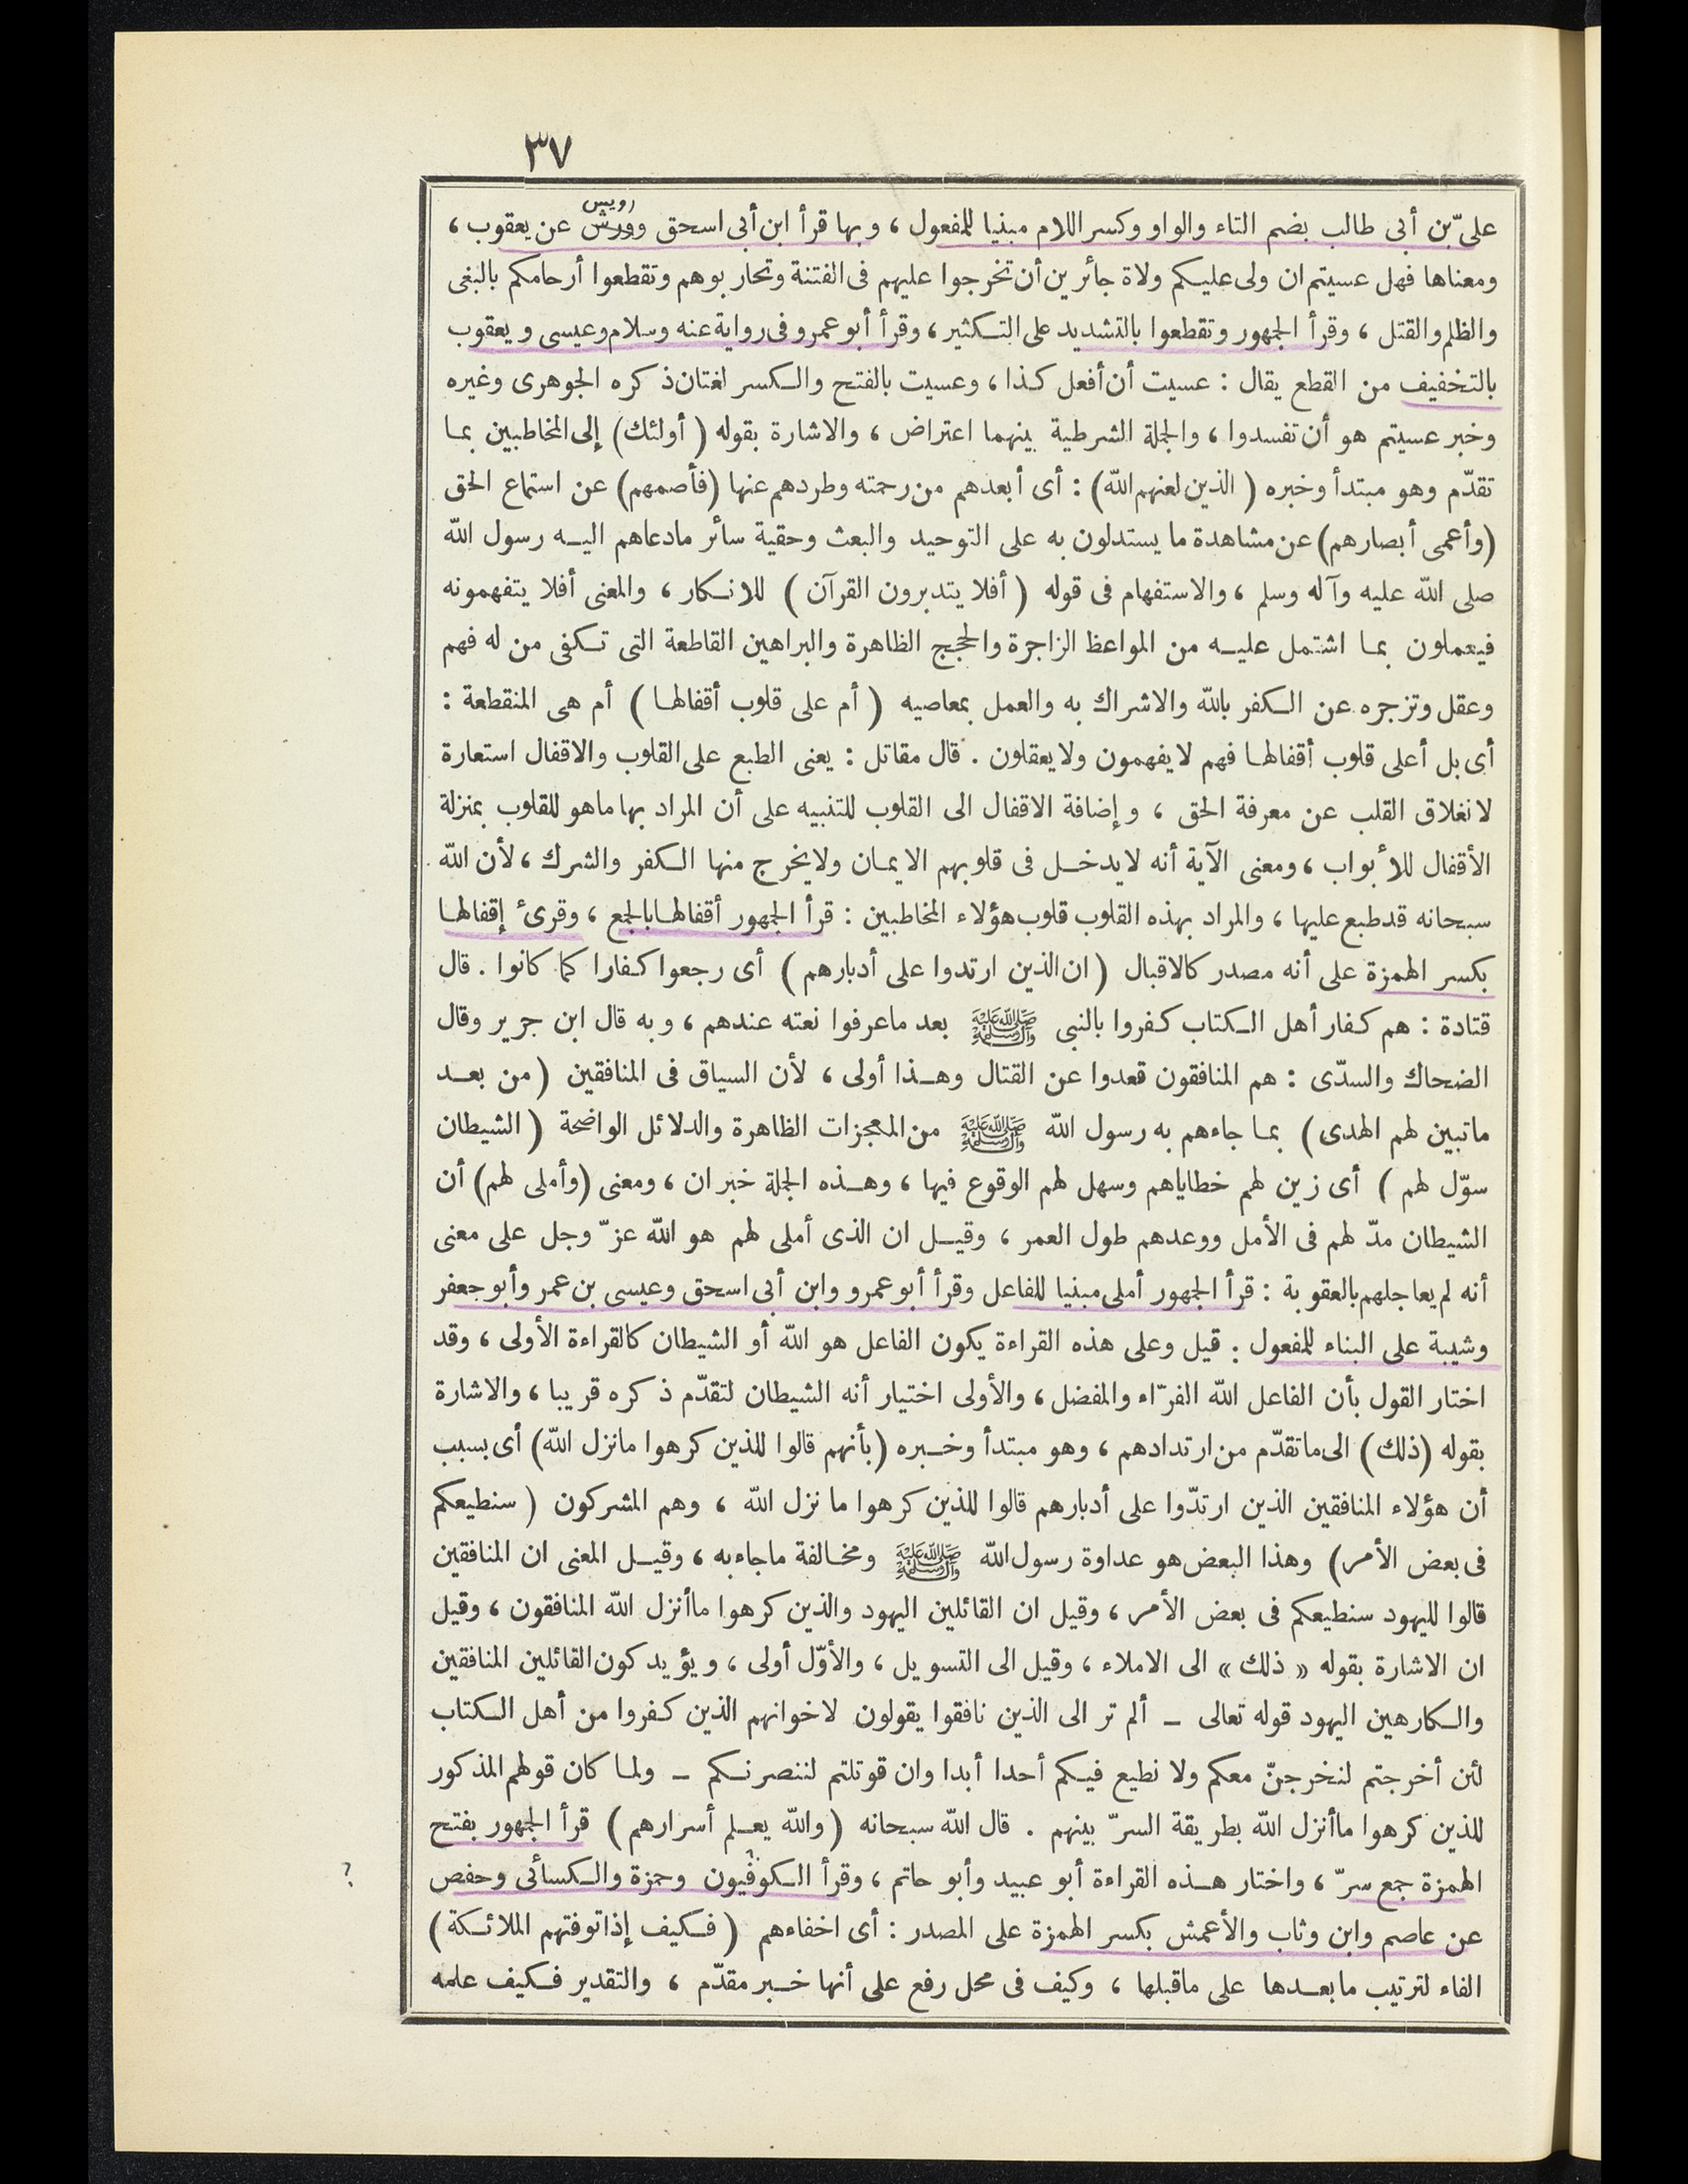 ٣٧
رويس
علىّ بن أبى طالب بضم التاء والواو وكسر اللام مبنيا للمفعول ، وبها قرأ ابن أبى اسحق وورش عن يعقوب ،
ومعناها فهل عسيتم ان ولى عليكم ولاة جائرين أن تخرجوا عليهم فى الفتنة وتحاربوهم وتقطعوا أرحامكم بالبغى
والظلم والقتل ، وقرأ الجمهور وتقطعوا بالتشديد على التكثير ، وقرأ أبو عمرو فى رواية عنه وسلام وعيسى ويعقوب
بالتخفيف من القطع يقال : عسيت أن أفعل كذا ، وعسيت بالفتح والكسر لغتان ذكره الجوهرى وغيره
وخبر عسيتم هو أن تفسدوا ، والجملة الشرطية بينهما اعتراض ، والاشارة بقوله ( أولئك) إلى المخاطبين بما
تقدّم وهو مبتدأ وخبره ( الذين لعنهم الله) : أى أبعدهم من رحمته وطردهم عنها (فأصمهم) عن استماع الحق
(وأعمى أبصارهم) عن مشاهدة ما يستدلون به على التوحيد والبعث وحقية سائر مادعاهم اليه رسول الله
صلى الله عليه وآله وسلم ، والاستفهام فى قوله ( أفلا يتدبرون القرآن ) للانكار ، والمعنى أفلا يتفهمونه
فيعملون بما اشتمل عليه من المواعظ الزاجرة والحجج الظاهرة والبراهين القاطعة التى تكفى من له فهم
وعقل وتزجره عن الكفر بالله والاشراك به والعمل بمعاصيه ( أم على قلوب أقفالها ) أم هى المنقطعة :
أى بل أعلى قلوب أقفالها فهم لا يفهمون ولا يعقلون . قال مقاتل : يعنى الطبع على القلوب والاقفال استعارة
لانغلاق القلب عن معرفة الحق ، وإضافة الاقفال الى القلوب للتنبيه على أن المراد بها ماهو للقلوب بمنزلة
الأقفال للأبواب ، ومعنى الآية أنه لايدخل فى قلوبهم الايمان ولايخرج منها الكفر والشرك ، لأن الله
سبحانه قد طبع عليها ، والمراد بهذه القلوب قلوب هؤلاء المخاطبين : قرأ الجمهور أقفالها بالجمع ، وقرئ إقفالها
بكسر الهمزة على أنه مصدر كالاقبال ( ان الذين ارتدوا على أدبارهم ) أى رجعوا كفارا كما كانوا . قال
قتادة : هم كفار أهل الكتاب كفروا بالنبى صلى الله عليه وآله وسلم بعد ماعرفوا نعته عندهم ، وبه قال ابن جرير وقال
الضحاك والسدّى : هم المنافقون قعدوا عن القتال وهذا أولى ، لأن السياق فى المنافقين ( من بعد
ماتبين لهم الهدى) بما جاءهم به رسول الله صلى الله عليه وآله وسلم من المعجزات الظاهرة والدلائل الواضحة ( الشيطان
سوّل لهم ) أى زين لهم خطاياهم وسهل لهم الوقوع فيها ، وهذه الجملة خبر ان ، ومعنى (وأملى لهم) أن
الشيطان مدّ لهم فى الأمل ووعدهم طول العمر ، وقيل ان الذى أملى لهم هو الله عزّ وجل على معنى
أنه لم يعاجلهم بالعقوبة : قرأ الجمهور أملى مبنيا للفاعل وقرأ أبو عمرو وابن أبى اسحق وعيسى بن عمر وأبو جعفر
وشيبة على البناء للمفعول : قيل وعلى هذه القراءة يكون الفاعل هو الله أو الشيطان كالقراءة الأولى ، وقد
اختار القول بأن الفاعل الله الفرّاء والمفضل ، والأولى اختيار أنه الشيطان لتقدّم ذكره قريبا ، والاشارة
بقوله (ذلك) الى ماتقدّم من ارتدادهم ، وهو مبتدأ وخبره (بأنهم قالوا للذين كرهوا مانزل الله) أى بسبب
أن هؤلاء المنافقين الذين ارتدّوا على أدبارهم قالوا للذين كرهوا ما نزل الله ، وهم المشركون ( سنطيعكم
فى بعض الأمر) وهذا البعض هو عداوة رسول الله صلى الله عليه وآله وسلم ومخالفة ماجاء به ، وقيل المعنى ان المنافقين
قالوا لليهود سنطيعكم فى بعض الأمر ، وقيل ان القائلين اليهود والذين كرهوا ماأنزل الله المنافقون ، وقيل
ان الاشارة بقوله « ذلك » الى الاملاء ، وقيل الى التسويل ، والأوّل أولى ، ويؤيد كون القائلين المنافقين
والكارهين اليهود قوله تعالى ــ ألم تر الى الذين نافقوا يقولون لاخوانهم الذين كفروا من أهل الكتاب
لئن أخرجتم لنخرجنّ معكم ولا نطيع فيكم أحدا أبدا وان قوتلتم لننصرنكم ــ ولما كان قولهم المذكور
للذين كرهوا ماأنزل الله بطريقة السرّ بينهم . قال الله سبحانه ( والله يعلم أسرارهم ) قرأ الجمهور بفتح
الهمزة جمع سرّ ، واختار هذه القراءة أبو عبيد وأبو حاتم ، وقرأ الكوفيون وحمزة والكسائى وحفص
؟
عن عاصم وابن وثاب والأعمش بكسر الهمزة على المصدر : أى اخفاءهم ( فكيف إذا توفتهم الملائكة )
الفاء لترتيب مابعدها على ماقبلها ، وكيف فى محل رفع على أنها خبر مقدّم ، والتقدير فكيف علمه